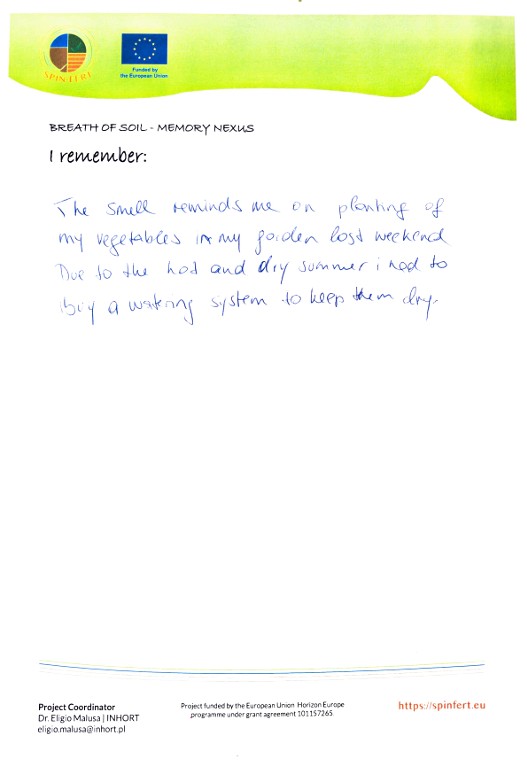 SPIN FERT
Funded by
the European Union
BREATH OF SOIL - MEMORY NEXUS
I remember:
The smell reminds me on planting of
my vegetables in my garden last weekend
Due to the hot and dry summer i had to
buy a watering system to keep them dry.
Project Coordinator
Dr. Eligio Malusa | INHORT
eligio.malusa@inhort.pl
Project funded by the European Union Horizon Europe
programme under grant agreement 101157265
https://spinfert.eu